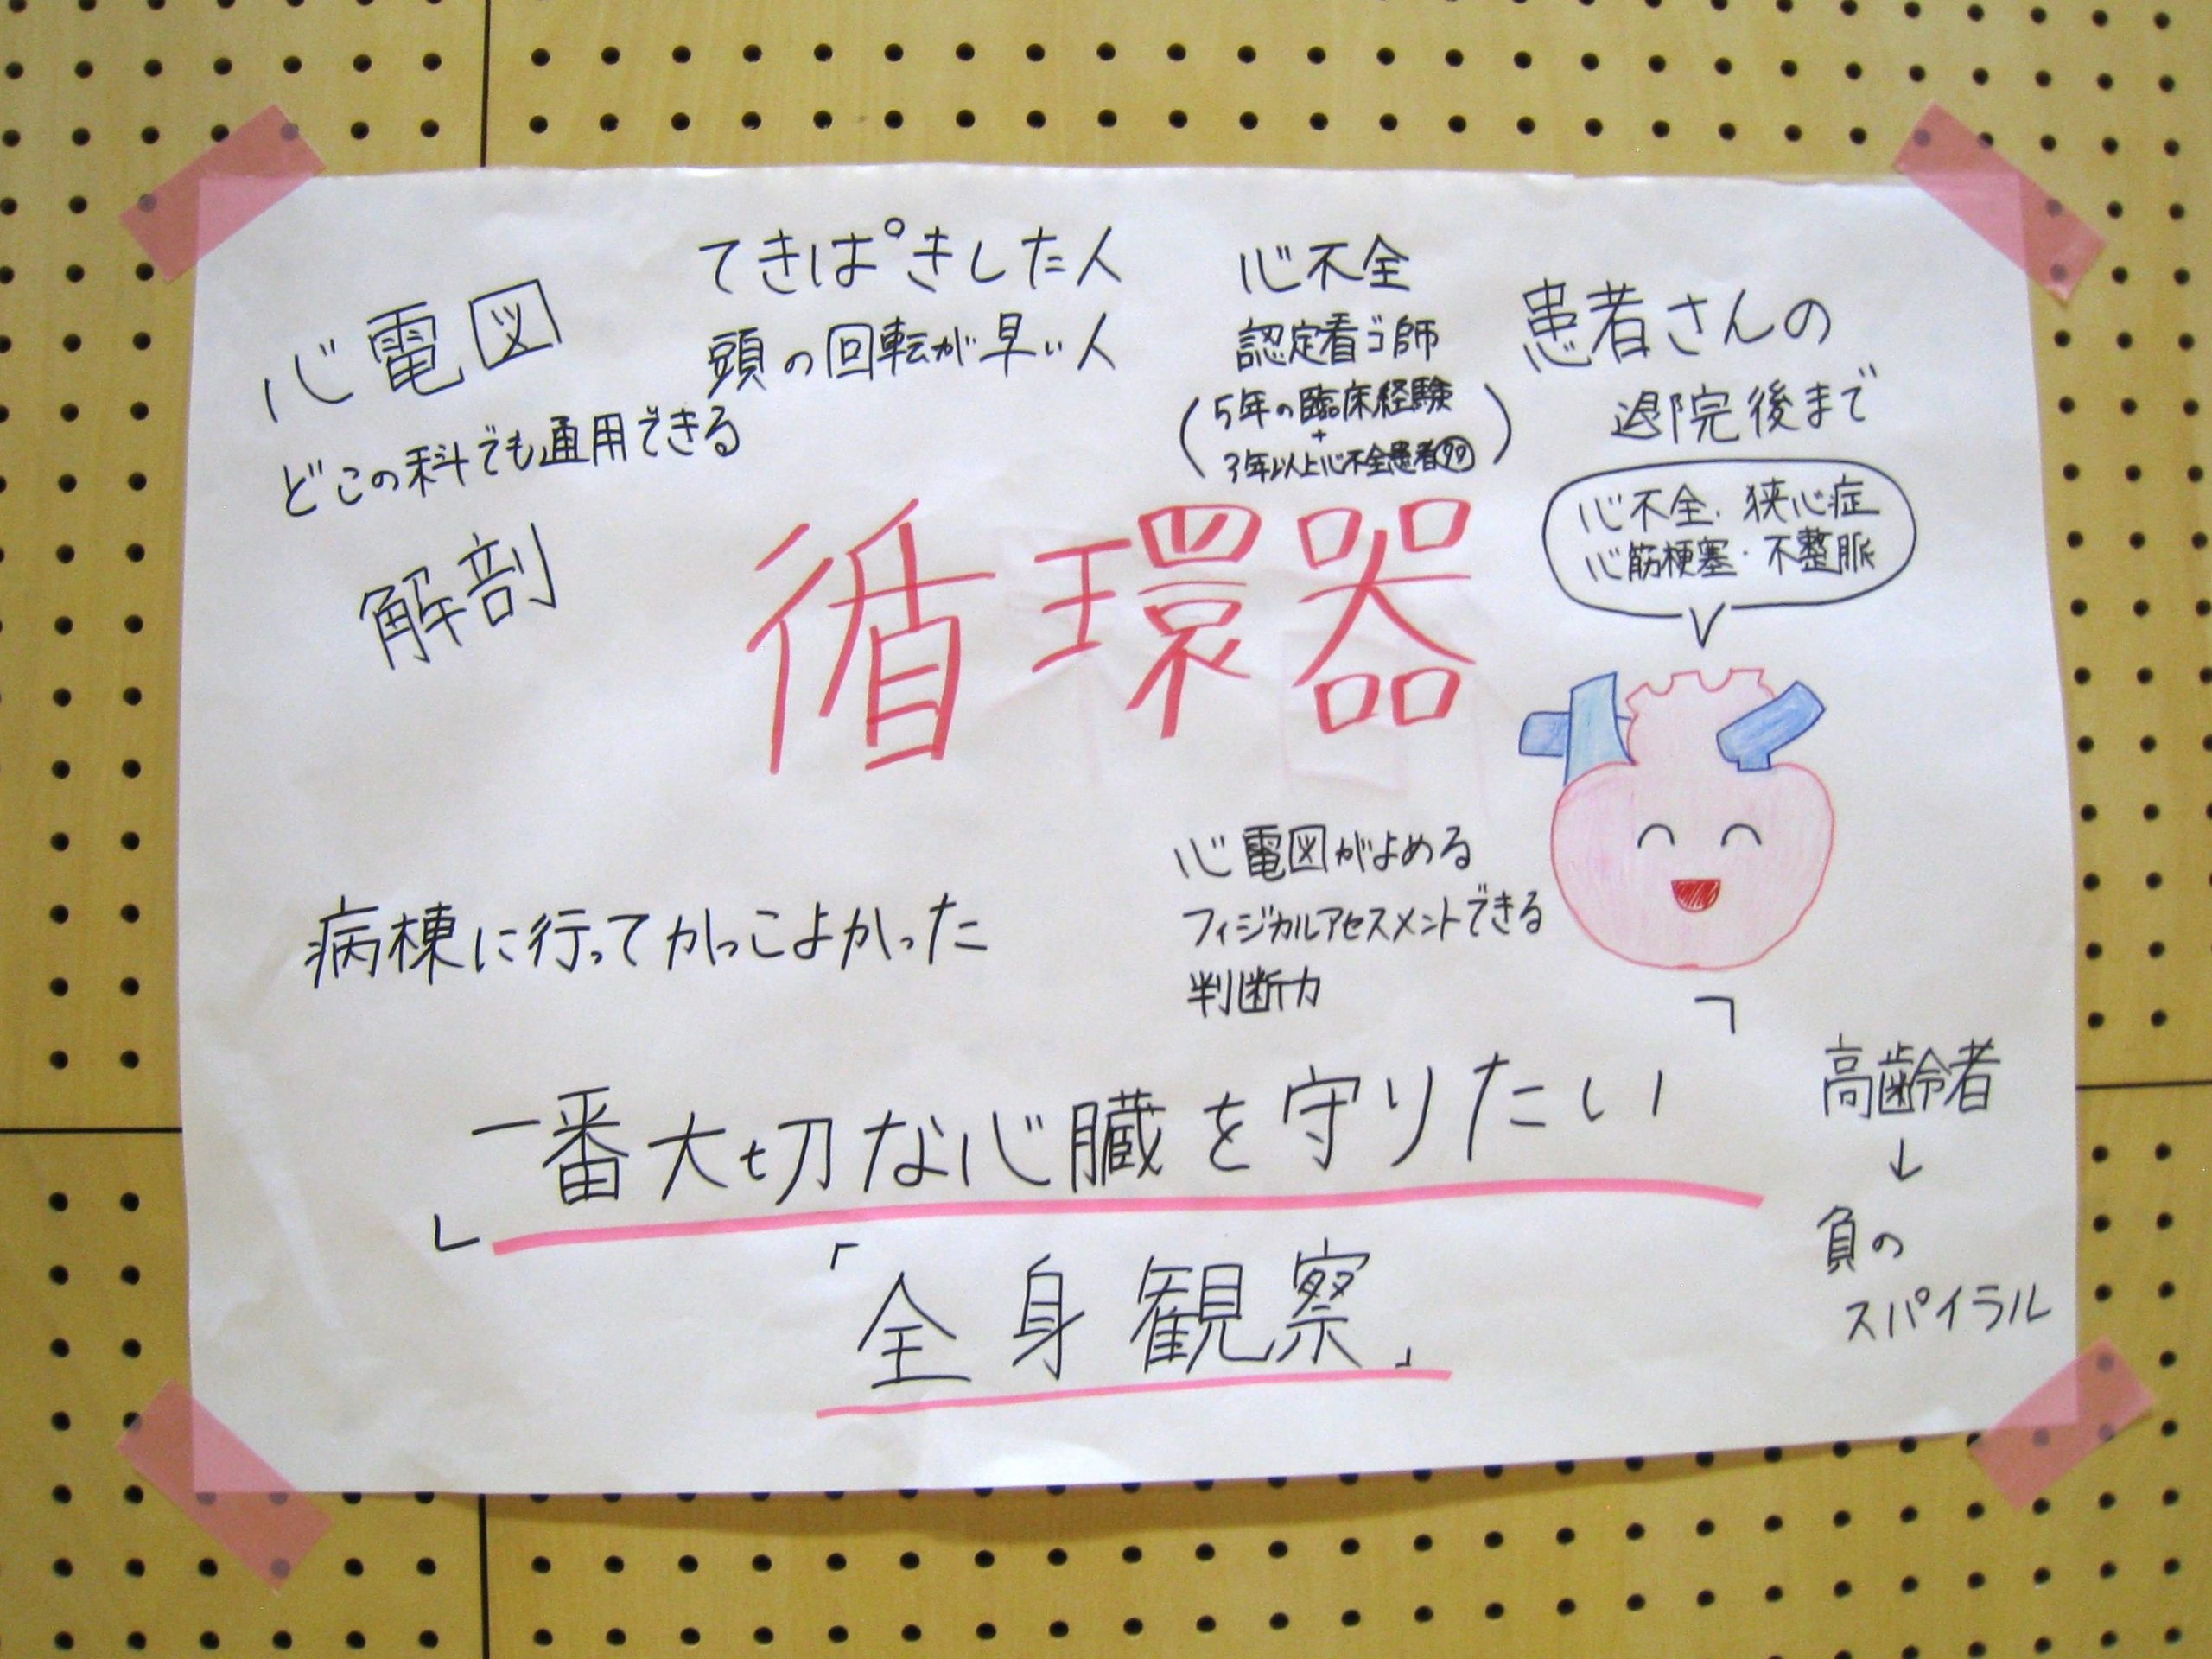 心電図
どこの科でも通用できる
解剖
てきぱきした人
頭の回転が早い人
心不全
認定看ゴ師
(5年の臨床経験
+
3年以上心不全患者)
患者さんの
退院後まで
心不全、狭心症
心筋梗塞・不整脈
循環器
病棟に行ってかっこよかった
心電図がよめる
フィジカルアセスメントできる
判断力
一番大切な心臓を守りたい
「全身観察」
高齢者
↓
負の
スパイラル